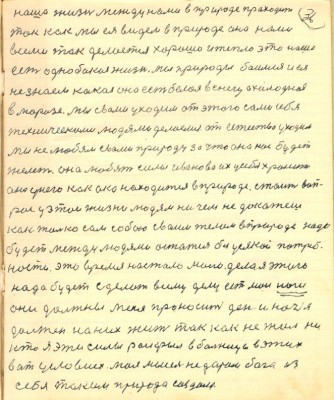 36
наша жизнь между нами в природе проходит
так как мы ея видем в природе она нами
всеми так делается хорошо и тепло это наше
ест однобокая жизн. мы природы боимся и ея
не знаем какая она ест белая в снегу а холодная
в морозе. мы с вами уходим от этого сами себя
техническими людями делаем от естества уходим
мы не любям с вами природу за что она нас будет
жалет. она любит силы
как она находится в природе. стоит воп-
рос у этой жизни людям ни чем не докажеш
как только сам собою своим телом в природе надо
будет между людями остатся без усякой потреб-
ности. это время настало мого. делая этого
надо будет сделат всему делу ест мои ноги
они должны меня проносит ден и ноч я
должен на них жит так как не жил ни
кто я эти силы роскрыл в болницы в этих
вот условиях. моя мысля не даром бога из
себя таким природа создала